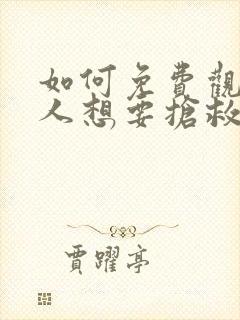 如何免費觀
人想要搶救
賈躍亭